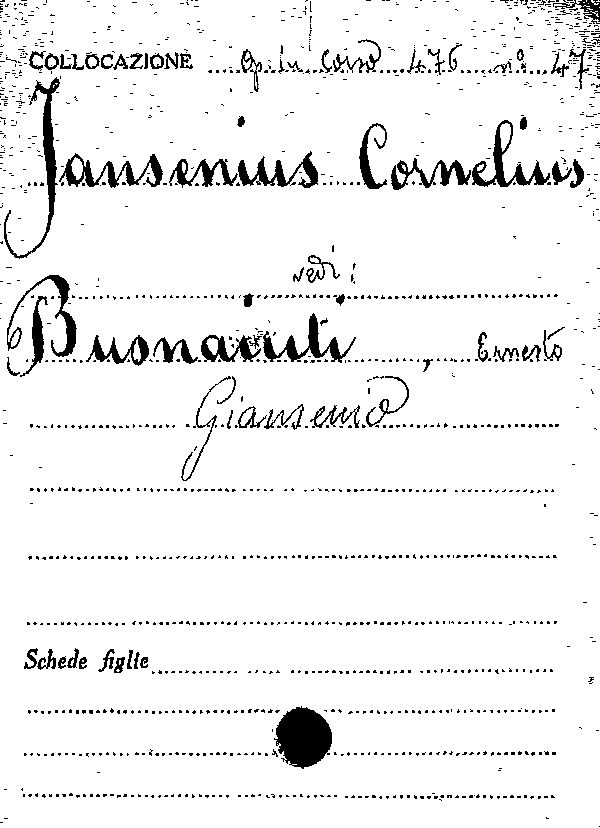 COLLOCAZIONE Op. in Corso 476 n° 47
Jansenius Cornelius
vedi:
Buonaiuti, Ernesto
Giansenio
Schede figlie